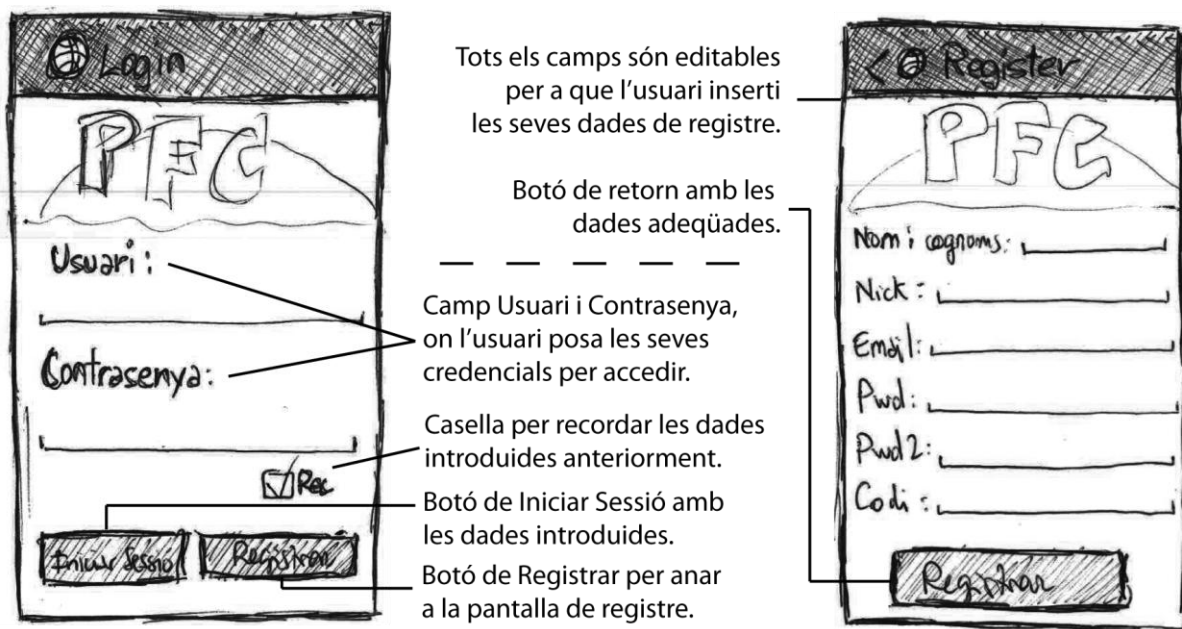 Login
PFC
Usuari:
Contrasenya:
Rec
Iniciar Sessió
Registrar
Tots els camps són editables
per a que l’usuari inserti
les seves dades de registre.
Botó de retorn amb les
dades adeqüades.
Camp Usuari i Contrasenya,
on l’usuari posa les seves
credencials per accedir.
Casella per recordar les dades
introduides anteriorment.
Botó de Iniciar Sessió amb
les dades introduides.
Botó de Registrar per anar
a la pantalla de registre.
< Register
PFC
Nom i cognoms:
Nick:
Email:
Pwd:
Pwd2:
Codi:
Registrar